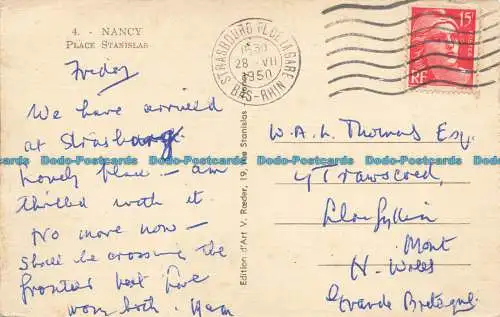 4. - NANCY
PLACE STANISLAS
Friday
We have arrived
at Strasbourg
Lovely place - am
thrilled with it
No more now -
Shall be crossing the
frontier
STRASBOURG PL. DE LA GARE
28 - VII
1950
BAS-RHIN
15F
RF
Edition d'Art V. Rœder, 19, Rue Stanislas
W. A. L. Thomas Esq.
Trawscoed,
Llanfyllin
Mont
N. Wales
Grande Bretagne
Dodo-Postcards Dodo-Postcards Dodo-Postcards Dodo-Postcards Dodo-Postcards